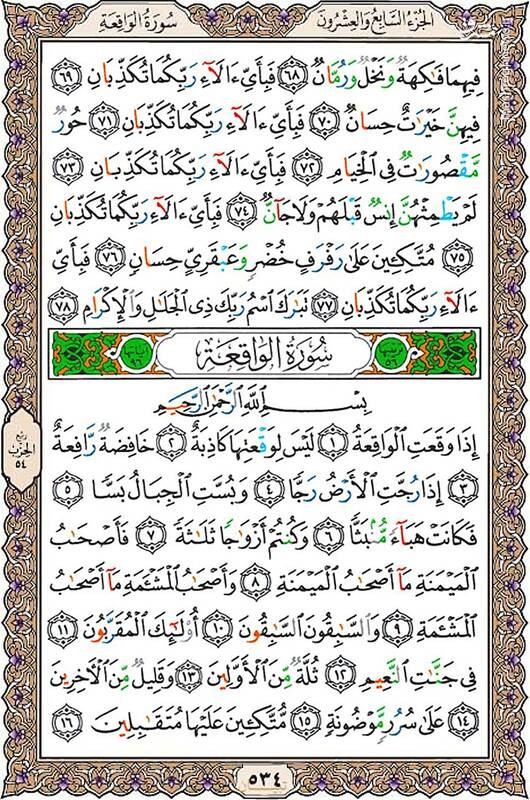 الجُزءُ السَّابِعُ وَالعِشْرُونَ
سُورَةُ الوَاقِعَة
فِيهِمَا فَاكِهَةٌ وَنَخْلٌ وَرُمَّانٌ ٦٨ فَبِأَيِّ ءَالَآءِ رَبِّكُمَا تُكَذِّبَانِ ٦٩
فِيهِنَّ خَيْرَاتٌ حِسَانٌ ٧٠ فَبِأَيِّ ءَالَآءِ رَبِّكُمَا تُكَذِّبَانِ ٧١ حُورٌ
مَّقْصُورَاتٌ فِي الْخِيَامِ ٧٢ فَبِأَيِّ ءَالَآءِ رَبِّكُمَا تُكَذِّبَانِ ٧٣
لَمْ يَطْمِثْهُنَّ إِنسٌ قَبْلَهُمْ وَلَا جَآنٌّ ٧٤ فَبِأَيِّ ءَالَآءِ رَبِّكُمَا تُكَذِّبَانِ
٧٥ مُتَّكِئِينَ عَلَى رَفْرَفٍ خُضْرٍ وَعَبْقَرِيٍّ حِسَانٍ ٧٦ فَبِأَيِّ
ءَالَآءِ رَبِّكُمَا تُكَذِّبَانِ ٧٧ تَبَارَكَ اسْمُ رَبِّكَ ذِي الْجَلَالِ وَالْإِكْرَامِ ٧٨
سُورَةُ الوَاقِعَةِ
بِسْمِ اللَّهِ الرَّحْمَٰنِ الرَّحِيمِ
إِذَا وَقَعَتِ الْوَاقِعَةُ ١ لَيْسَ لِوَقْعَتِهَا كَاذِبَةٌ ٢ خَافِضَةٌ رَّافِعَةٌ
٣ إِذَا رُجَّتِ الْأَرْضُ رَجًّا ٤ وَبُسَّتِ الْجِبَالُ بَسًّا ٥
فَكَانَتْ هَبَآءً مُّنۢبَثًّا ٦ وَكُنتُمْ أَزْوَاجًا ثَلَاثَةً ٧ فَأَصْحَابُ
الْمَيْمَنَةِ مَآ أَصْحَابُ الْمَيْمَنَةِ ٨ وَأَصْحَابُ الْمَشْـَٔمَةِ مَآ أَصْحَابُ
الْمَشْـَٔمَةِ ٩ وَالسَّابِقُونَ السَّابِقُونَ ١٠ أُولَٰٓئِكَ الْمُقَرَّبُونَ ١١
فِي جَنَّاتِ النَّعِيمِ ١٢ ثُلَّةٌ مِّنَ الْأَوَّلِينَ ١٣ وَقَلِيلٌ مِّنَ الْآخِرِينَ
١٤ عَلَى سُرُرٍ مَّوْضُونَةٍ ١٥ مُّتَّكِئِينَ عَلَيْهَا مُتَقَابِلِينَ ١٦
ربع
الحزب
٥٤
٥٣٤